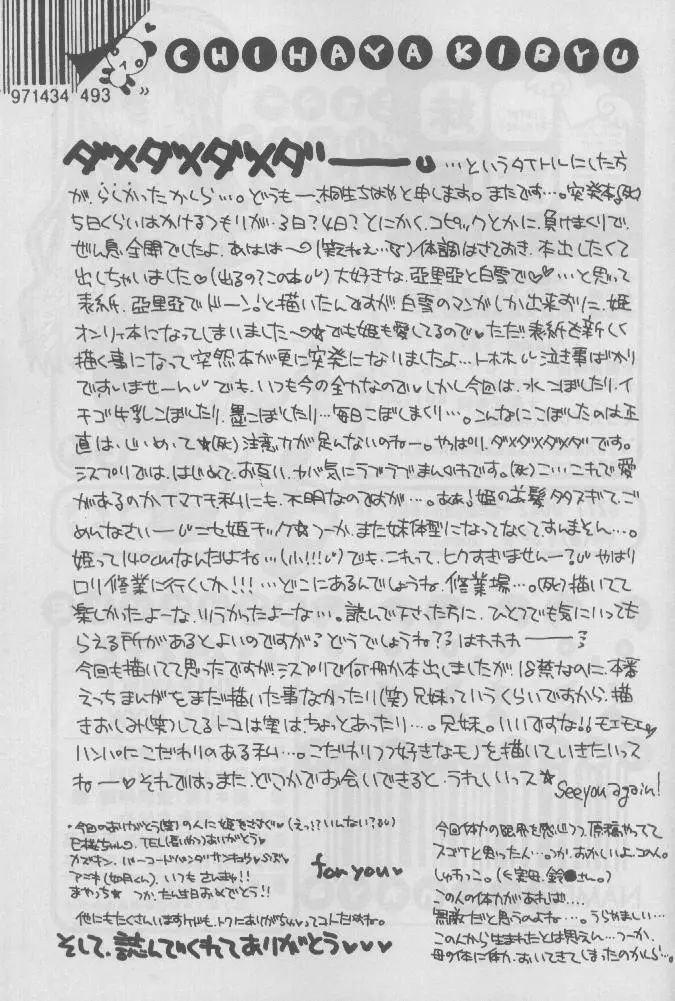 971434 493
CHIHAYA KIRYU
ダメダメダメダーーー。 …というタイトルにした方
が、らしかったかしら…。どうもー、桐生ちはやと申します。またです…。突発本(死)
5日くらいはかけるつもりが、3日?4日?とにかく、コピックとかに、負けまくりで、
ぜん息全開でしたよ、あはは〜(笑えねぇ…死)体調はさておき、本出したくて
出しちゃいました♡(出るの?この本)大好きな、亞里亞と白雪で♡♡…と思って
表紙、亞里亞でドーン!と描いたんですが白雪のマンガしか出来おりに、姫
オンリィ本になってしまいました〜☆でも姫も愛してるので♥ただ表紙を新しく
描く事になって突然本が更に突発になりましたよ…トホホ 泣き事ばかり
ですいませーん でも、いつも今の全力なので♥しかし今回は、水こぼしたり、イ
チゴ牛乳こぼしたり、墨こぼしたり…毎日こぼしまくり…。こんなにこぼしたのは正
直は、じめて★(死)注意力が足んないのねー。やっぱり、ダメダメダメダメです。
シスプリでは、はじめて、お互い、ヤバ気にラブラブまんがです。(死)こ…これで愛
があるのかイマイチ、私にも、不明なのですが…。ああ!姫のお髪タクスギて、ご
めんなさいー ニセ姫チック☆つーか、また妹体型になってなくて、すいません…。
姫って140cmなんだよね…(小!!!)でも、これって、ヒクすぎいませんー? やはり
ロリ修業に行くしか!!!…どこにあるんでしょうね、修業場…。(死)描いてて
楽しかったよーな、ツラかったよーな…。読んで下さった方に、ひとつでも気にいっても
らえる所があるとよいのですが?どうでしょうね??はわわわーーー?
今回も描いてて思ったですが、シスプリで何冊か本出しましたが、18禁なのに、本番
えっちまんがをまだ描いた事なかったり(笑)兄妹っていうくらいですから、描
きおしみ(笑)してるトコは実は、ちょっとあったり…。兄妹。いいですな!!モエモエ♥
ハンパにこだわりのある私…。こだわりつつ好きなモノを描いていきたいっス
ねー♥それではっまた、どこかでお会いできると、うれしいっス★ See you again!
・今回のありがとう(笑)の人に姫をささぐ♥(えっ!?いんない?)
TEL(長いやつ)ありがとう!!
カズキン、バーコードバンダサンねりゃぶ♥
アニキ(如月くん)、いつもさんきゅ!!
まやっち★ つか、たん生日おめでとう!!
他にもたくさんいますケド、トクにありがちゅ♥ってコトだわね。
for you♥
そして、読んでくれてありがとう♥♥♥
今回体力の限界を感じつつ、原稿やってて
スゴイと思った人…つか、おかしいよ、コの人。
しゅわっこ。(を実母、鈴●さん。)
この人の体力があれば…、
無敵だと思うのよね…。うらやましい…
この人から生まれたとは思えん…つーか、
母の体に体力、おいてきてしまったのかしら…。